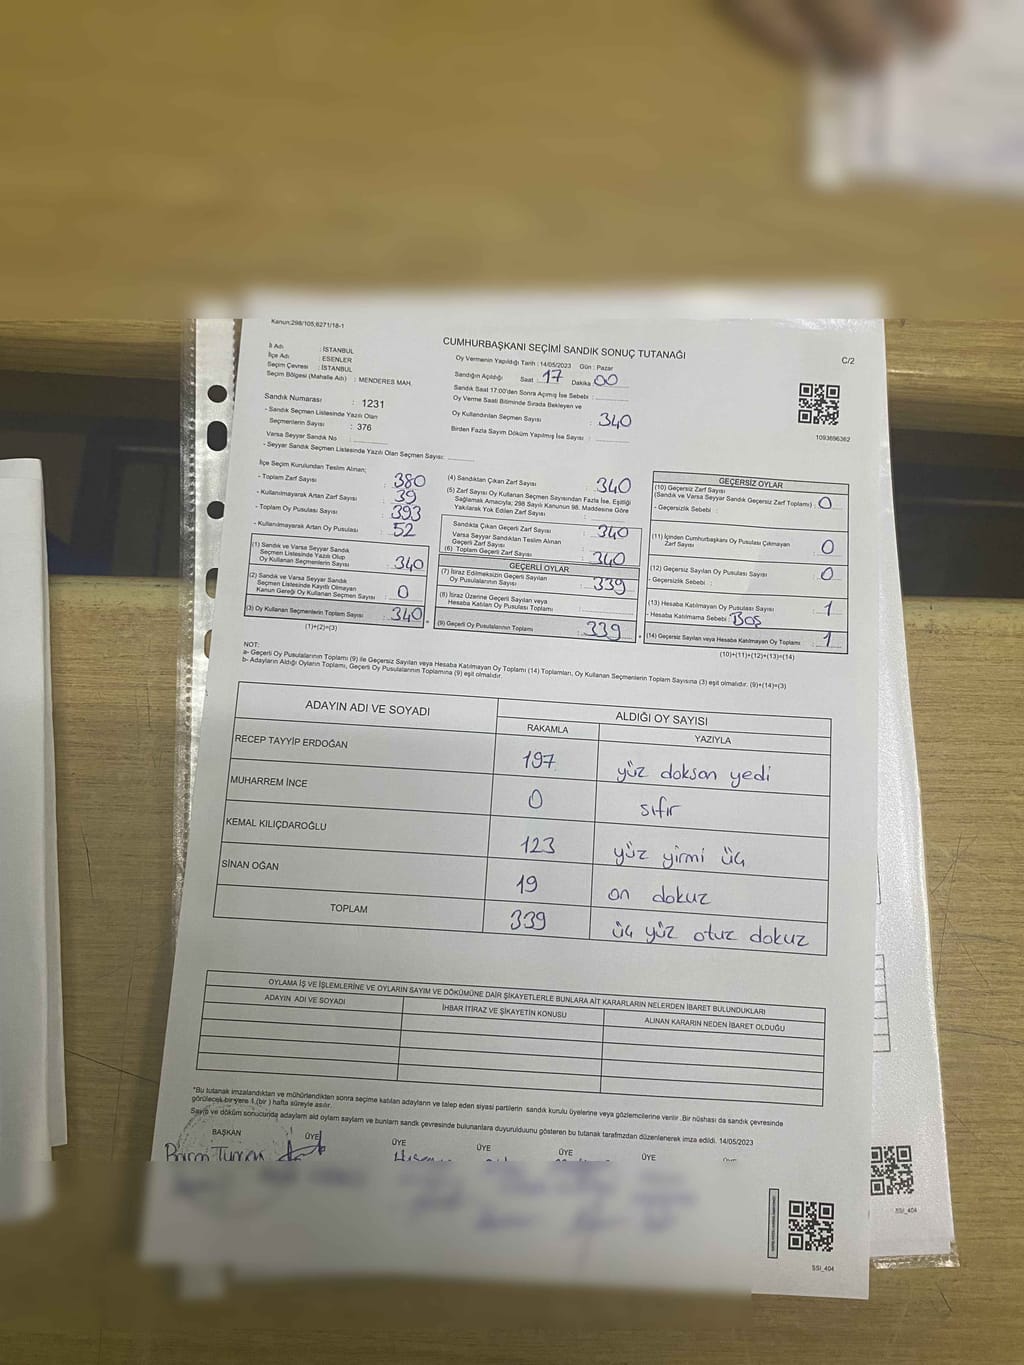 Kanun:298/105,6271/18-1
CUMHURBAŞKANI SEÇİMİ SANDIK SONUÇ TUTANAĞI
C/2
İl Adı : İSTANBUL
İlçe Adı : ESENLER
Seçim Çevresi : İSTANBUL
Seçim Bölgesi (Mahalle Adı) : MENDERES MAH.
Oy Vermenin Yapıldığı Tarih : 14/05/2023 Gün : Pazar
Sandığın Açıldığı Saat : 17 Dakika 00
Sandık Saat 17:00'den Sonra Açımış İse Sebebi :
Oy Verme Saati Bitiminde Sırada Bekleyen ve
Oy Kullandırılan Seçmen Sayısı : 340
Birden Fazla Sayım Döküm Yapılmış İse Sayısı :
1093696362
Sandık Numarası : 1231
- Sandık Seçmen Listesinde Yazılı Olan
Seçmenlerin Sayısı : 376
Varsa Seyyar Sandık No :
- Seyyar Sandık Seçmen Listesinde Yazılı Olan Seçmen Sayısı:
İlçe Seçim Kurulundan Teslim Alınan;
- Toplam Zarf Sayısı : 380
- Kullanılmayarak Artan Zarf Sayısı : 39
- Toplam Oy Pusulası Sayısı : 393
- Kullanılmayarak Artan Oy Pusulası : 52
(1) Sandık ve Varsa Seyyar Sandık
Seçmen Listesinde Yazılı Olup
Oy Kullanan Seçmenlerin Sayısı : 340
(2) Sandık ve Varsa Seyyar Sandık
Seçmen Listesinde Kayıtlı Olmayan
Kanun Gereği Oy Kullanan Seçmen Sayısı : 0
(3) Oy Kullanan Seçmenlerin Toplam Sayısı : 340
(1)+(2)=(3)
(4) Sandıktan Çıkan Zarf Sayısı : 340
(5) Zarf Sayısı Oy Kullanan Seçmen Sayısından Fazla İse, Eşitliği
Sağlamak Amacıyla; 298 Sayılı Kanunun 98. Maddesine Göre
Yakılarak Yok Edilen Zarf Sayısı :
Sandıkta Çıkan Geçerli Zarf Sayısı : 340
Varsa Seyyar Sandıktan Teslim Alınan
Geçerli Zarf Sayısı :
(6) Toplam Geçerli Zarf Sayısı : 340
GEÇERLİ OYLAR
(7) İtiraz Edilmeksizin Geçerli Sayılan
Oy Pusulalarının Sayısı : 339
(8) İtiraz Üzerine Geçerli Sayılan veya
Hesaba Katılan Oy Pusulası Toplamı :
(9) Geçerli Oy Pusulalarının Toplamı : 339
GEÇERSİZ OYLAR
(10) Geçersiz Zarf Sayısı
(Sandık ve Varsa Seyyar Sandık Geçersiz Zarf Toplamı) : 0
- Geçersizlik Sebebi :
(11) İçinden Cumhurbaşkanı Oy Pusulası Çıkmayan
Zarf Sayısı : 0
(12) Geçersiz Sayılan Oy Pusulası Sayısı : 0
- Geçersizlik Sebebi :
(13) Hesaba Katılmayan Oy Pusulası Sayısı : 1
- Hesaba Katılmama Sebebi : BOŞ
(14) Geçersiz Sayılan veya Hesaba Katılmayan Oy Toplamı : 1
(10)+(11)+(12)+(13)=(14)
NOT:
a- Geçerli Oy Pusulalarının Toplamı (9) ile Geçersiz Sayılan veya Hesaba Katılmayan Oy Toplamı (14) Toplamları, Oy Kullanan Seçmenlerin Toplam Sayısına (3) eşit olmalıdır. (9)+(14)=(3)
b- Adayların Aldığı Oyların Toplamı, Geçerli Oy Pusulalarının Toplamına (9) eşit olmalıdır.
ADAYIN ADI VE SOYADI ALDIĞI OY SAYISI
RAKAMLA YAZIYLA
RECEP TAYYİP ERDOĞAN 197 yüz doksan yedi
MUHARREM İNCE 0 sıfır
KEMAL KILIÇDAROĞLU 123 yüz yirmi üç
SİNAN OĞAN 19 on dokuz
TOPLAM 339 üç yüz otuz dokuz
OYLAMA İŞ VE İŞLEMLERİNE VE OYLARIN SAYIM VE DÖKÜMÜNE DAİR ŞİKAYETLERLE BUNLARA AİT KARARLARIN NELERDEN İBARET BULUNDUKLARI
ADAYIN ADI VE SOYADI İHBAR İTİRAZ VE ŞİKAYETİN KONUSU ALINAN KARARIN NEDEN İBARET OLDUĞU
*Bu tutanak imzalandıktan ve mühürlendikten sonra seçime katılan adayların ve talep eden siyasi partilerin sandık kurulu üyelerine veya gözlemcilerine verilir .Bir nüshası da sandık çevresinde
görülecek bir yere 1 (bir ) hafta süreyle asılır.
Sayıp ve döküm sonucunda adayların ald oyların sayların ve bunların sandk çevresinde bulunanlara duyurulduunu gösteren bu tutanak tarafmzdan düzenlenerek imza edildi. 14/05/2023
BAŞKAN ÜYE ÜYE ÜYE ÜYE ÜYE
SSI_404
SSI_404